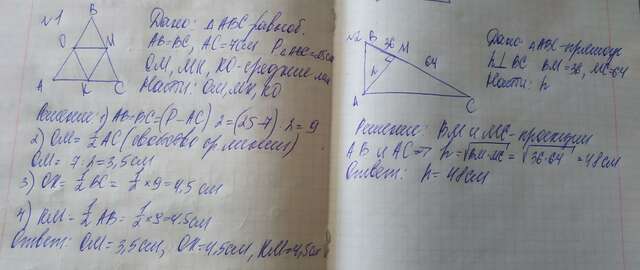 №1
B
O M
A K C
Дано: △ABC равноб.
AB=BC, AC=7см P△ABC=25см
OM, MK, KO - средние лин
Найти: OM, MK, KO
Решение: 1) AB=BC=(P-AC):2=(25-7):2=9
2) OM=½AC (свойство ср линии)
OM=7:2=3,5см
3) OK=½BC=½×9=4,5см
4) KM=½AB=½×9=4,5см
Ответ: OM=3,5см, OK=4,5см, KM=4,5см
№2 B 36 M
64
h
A
C
Дано: △ABC-прямоуг
h⊥BC BM=36, MC=64
Найти: h
Решение: BM и MC - проекции
AB и AC ⇒ h=√BM·MC=√36·64=48см
Ответ: h=48см